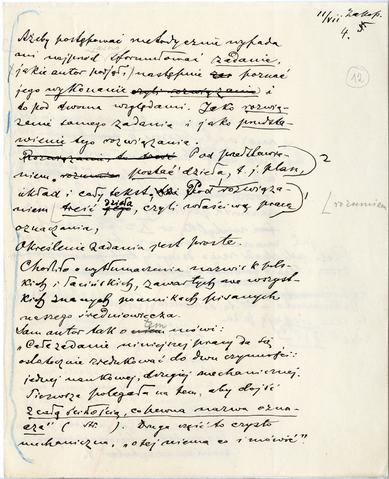 11/VII Zakop.
4.
12
Ażeby postępować metodycznie wypada
mi najpierw sformułować zadanie,
(jakie autor podjął) następnie poznać
jego wykonanie czyli rozwiązanie i
to pod dwoma względami. Jako rozwią-
zanie samego zadania i jako przedsta-
wienie tego rozwiązania.
Rozwiązanie to Pod przedstawie-
niem rozumiem postać dzieła, t. j. plan, 2
układ i cały tekst, Pod rozwiąza-
niem (treść dzieła, czyli właściwą pracę 1
oznaczania, [rozumiem
Określenie zadania jest proste.
Chodziło o wytłumaczenie nazwisk pol-
skich i łacińskich, zawartych we wszyst-
kich znanych pomnikach pisanych
naszego średniowiecza.
Sam autor tak o tem mówi:
"Całe zadanie niniejszej pracy da się
ostatecznie zredukować do dwu czynności:
jednej naukowej, drugiej mechanicznej.
Pierwsza polegała na tem, aby dojść
z całą ścisłością, co pewna nazwa ozna-
cza" ( str. ). Druga część to czysto
mechaniczna, "o tej niema co i mówić".